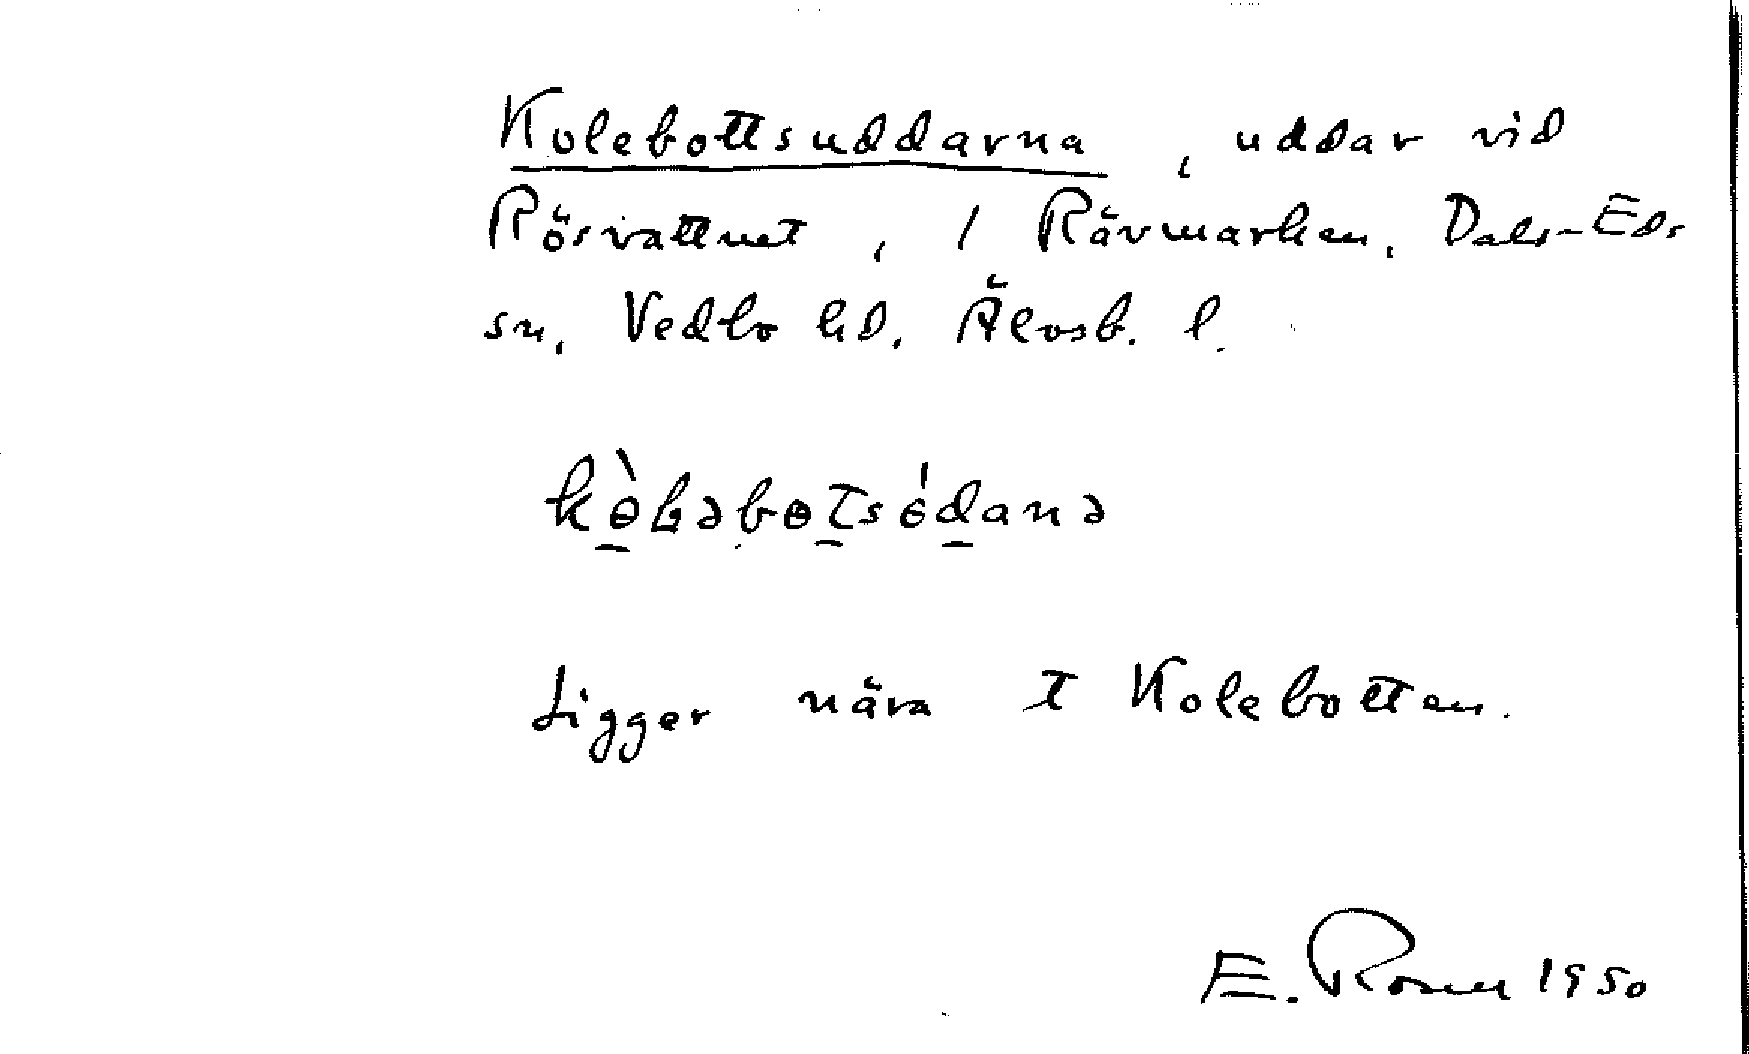 Kolebottsuddarna, uddar vid
Rösvattnet, / Rävmarken, Dals-Eds
sn, Vedbo hd, Älvsb. l.
kɵ̀ɭəbɵtsɵ́danə
Ligger nära t Kolebotten.
E. 1950